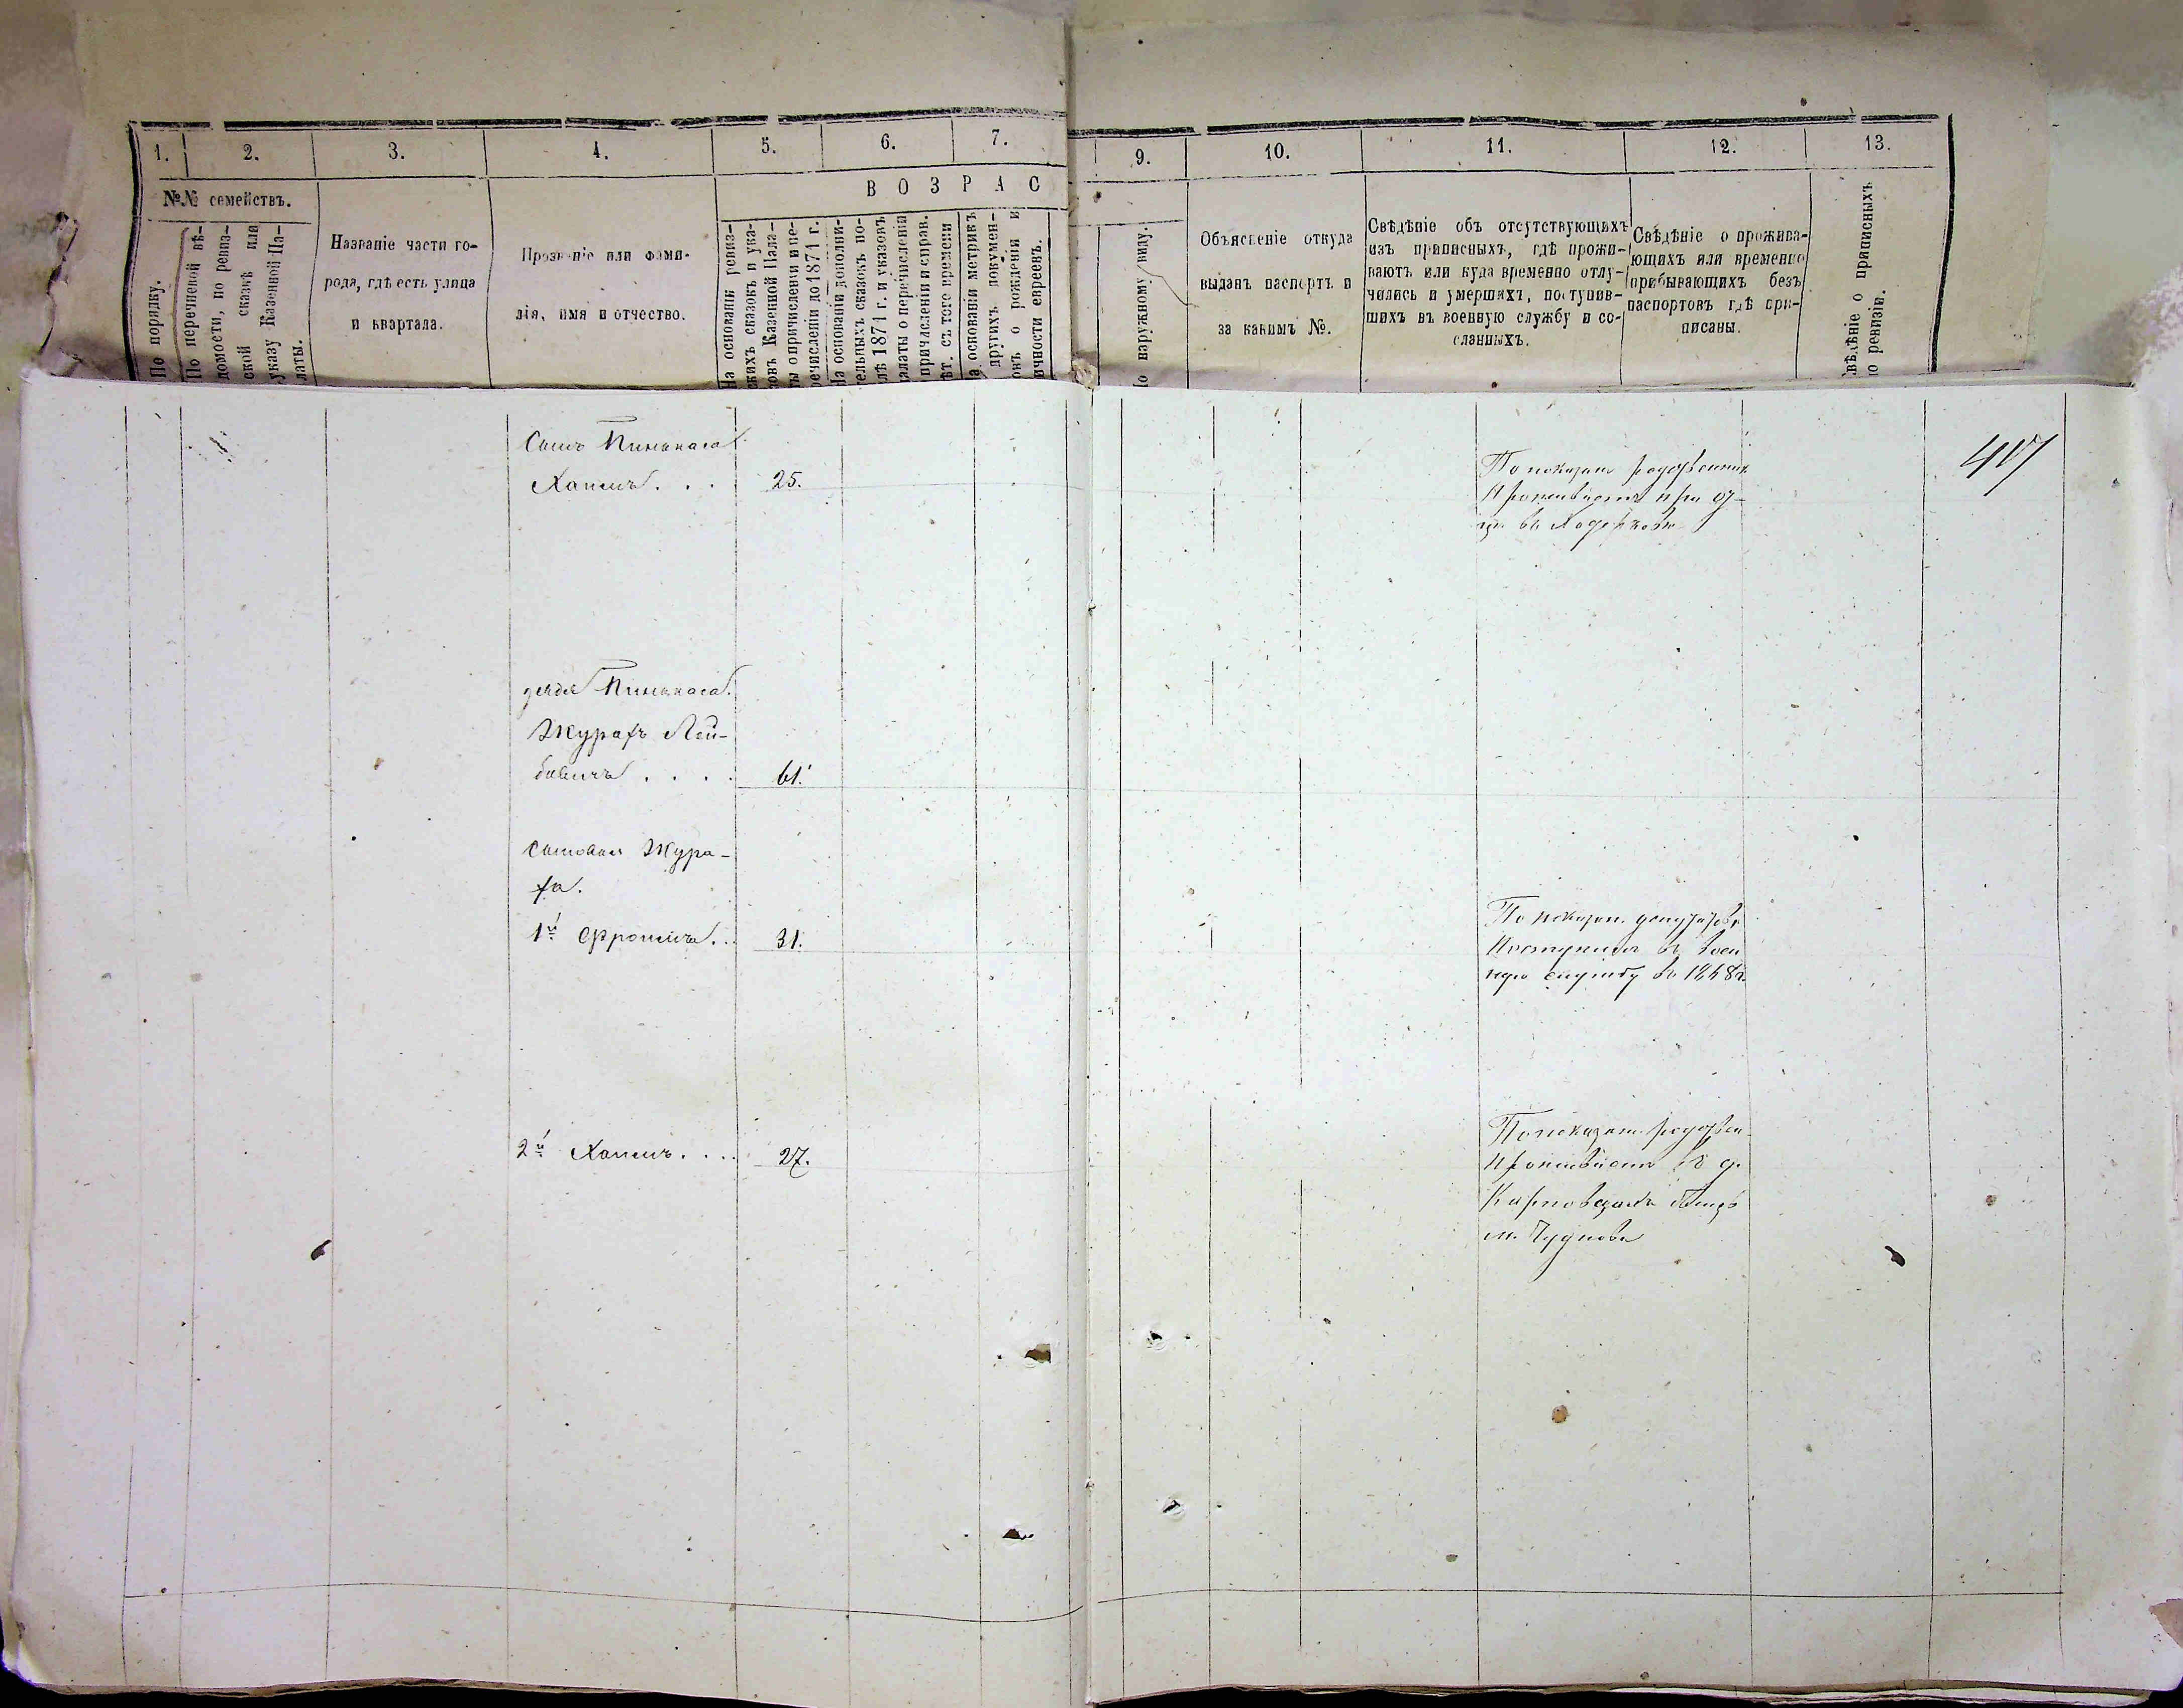 1.
2.
3.
4.
5.
6.
7.
9.
10.
11.
12.
13.
№№ семействъ.
По порядку.
По перечневой вѣ-
домости, по ревиз-
ской сказкѣ или
указу Казенной Па-
латы.
Названіе части го-
рода, гдѣ есть улица
и квартала.
Прозваніе или фами-
лія, имя и отчество.
ВОЗРАС
На основаніи ревиз-
скихъ сказокъ и ука-
зовъ Казенной Пала-
ты о причисленіи и пе-
речисленіи до 1871 г.
На основаніи дополни-
тельныхъ сказокъ по-
слѣ 1871 г. и указовъ
палаты о перечисленіи
причисленіи и справ.
лѣт. съ того времени
На основаніи метрикъ
другихъ докумен-
товъ о рожденіи и
личности евреевъ.
По наружному виду.
Объясненіе откуда
выданъ паспортъ и
за какимъ №.
Свѣдѣніе объ отсутствующихъ
изъ приписныхъ, гдѣ прожи-
ваютъ или куда временно отлу-
чились и умершихъ, поступив-
шихъ въ военную службу и со-
сланныхъ.
Свѣдѣніе о прожива-
ющихъ или временно
прибывающихъ безъ
паспортовъ гдѣ при-
писаны.
Свѣдѣніе о приписныхъ
по ревизіи.
Сынъ Пинькаса
Хаимъ. . . 25.
По показан родствен
проживаетъ при от-
цѣ въ Ходорковѣ
дядя Пинькаса.
Журахъ Лей-
бовичъ . . . . 61.
Сыновья Жура-
ха.
1й Фроимъ. . 31.
По показан. депутатовъ
поступилъ въ воен
ную службу въ 1868 г.
2й Хаимъ. . . . 27.
По показан. родствен-
проживаетъ въ д.
м. Чуднова